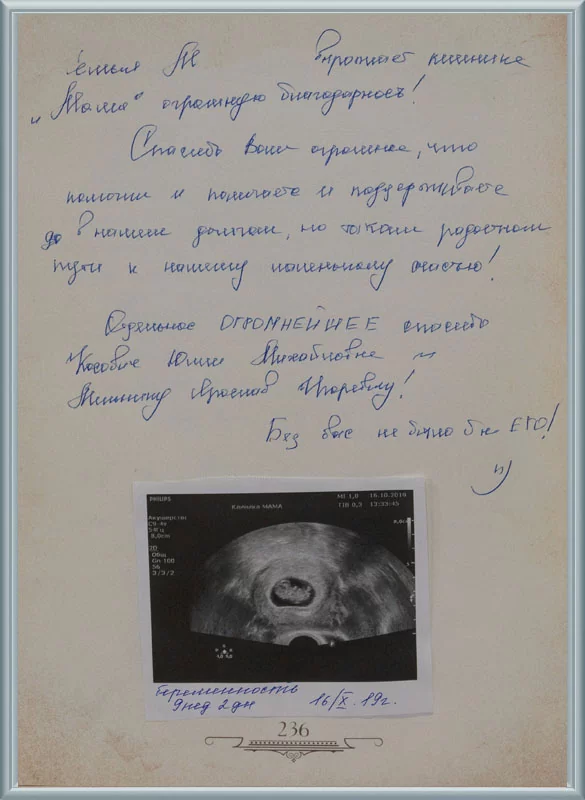 семья М выражает клинике
„Мама" огромную благодарность!
Спасибо Вам огромное, что
помогли и помогаете и поддерживаете
в нашем долгом, но таком радостном
пути к нашему маленькому счастью!
Отдельное ОГРОМНЕЙШЕЕ спасибо
Юлии Михайловне и
Игоревичу!
Без вас не было бы ЕГО!
:)
PHILIPS
Клініка МАМА
MI 1,0 16.10.2019
TIB 0,3 13:33:45
Акушерство
C5-4s
54Гц
8,0cm
2D
Общ
Gn 100
56
3/3/2
беременность
9нед 2дн 16/X.19г.
236